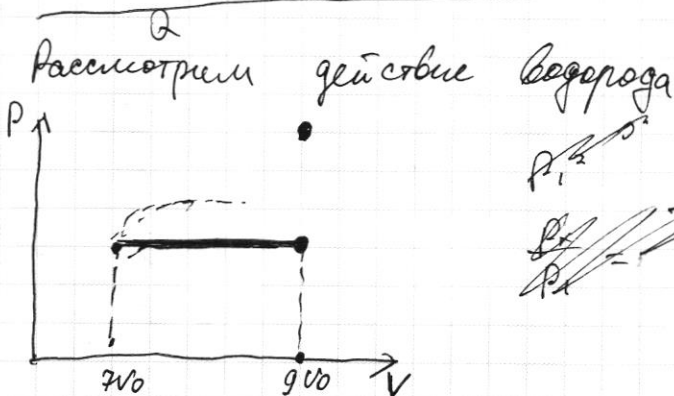 Q
Рассмотрим действие водорода
P
7V₀ 9V₀ V